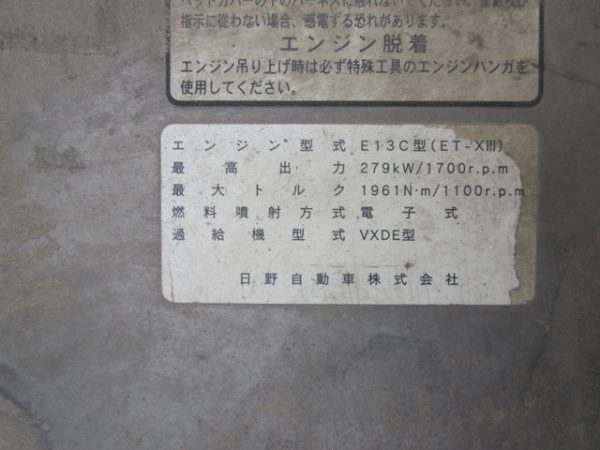 ヘッドカバーの下のハーネスに触れないでください。
指示に従わない場合、感電する恐れがあります。
エンジン脱着
エンジン吊り上げ時は必ず特殊工具のエンジンハンガを
使用してください。
エンジン型式 E13C型(ET-XIII)
最高出力 279kW/1700r.p.m
最大トルク 1961N·m/1100r.p.m
燃料噴射方式 電子式
過給機型式 VXDE型
日野自動車株式会社